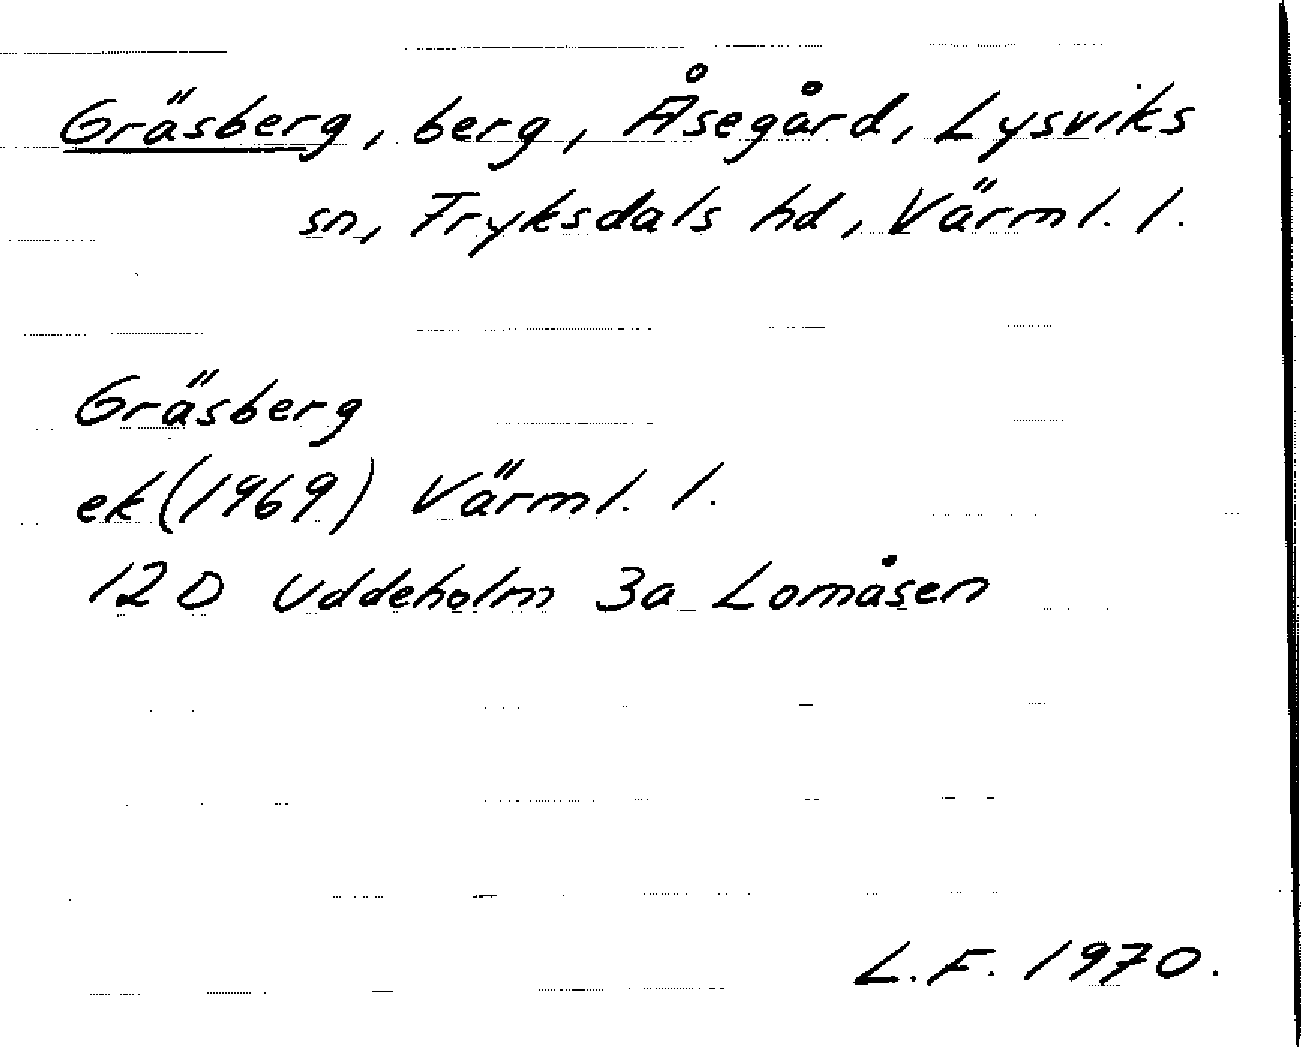 Gräsberg, berg, Åsegård, Lysviks
sn, Fryksdals hd, Värml. l.
Gräsberg
ek (1969) Värml. l.
12 D Uddeholm 3a Lomåsen
L.F. 1970.